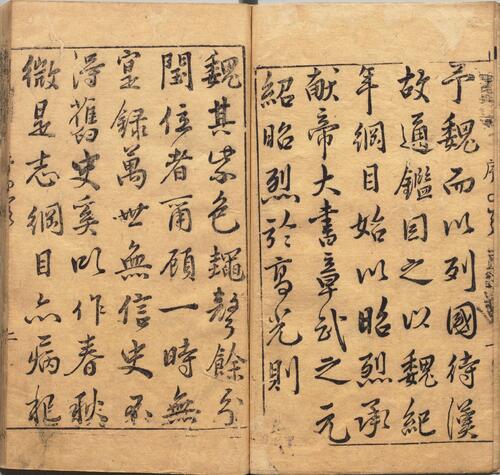 予魏而以列國待漢
故通鑑因之以魏紀
年綱目始以昭烈承
献帝大書章武之元
紹昭烈於高光則
魏其紫色蠅聲餘分
閏位者爾顧一時無
寔錄萬世無信史不
得舊史奚以作春秋
微是志綱目亦病杞